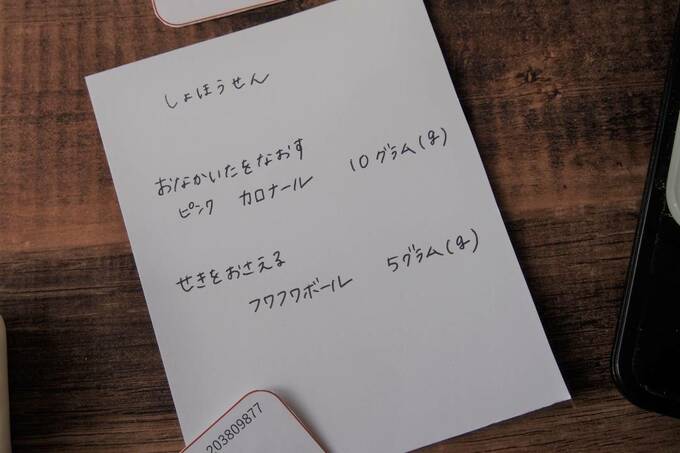 しょほうせん
おなかいたをなおす
ピンク カロナール 10グラム(g)
せきをおさえる
フワフワボール 5グラム(g)
203809877